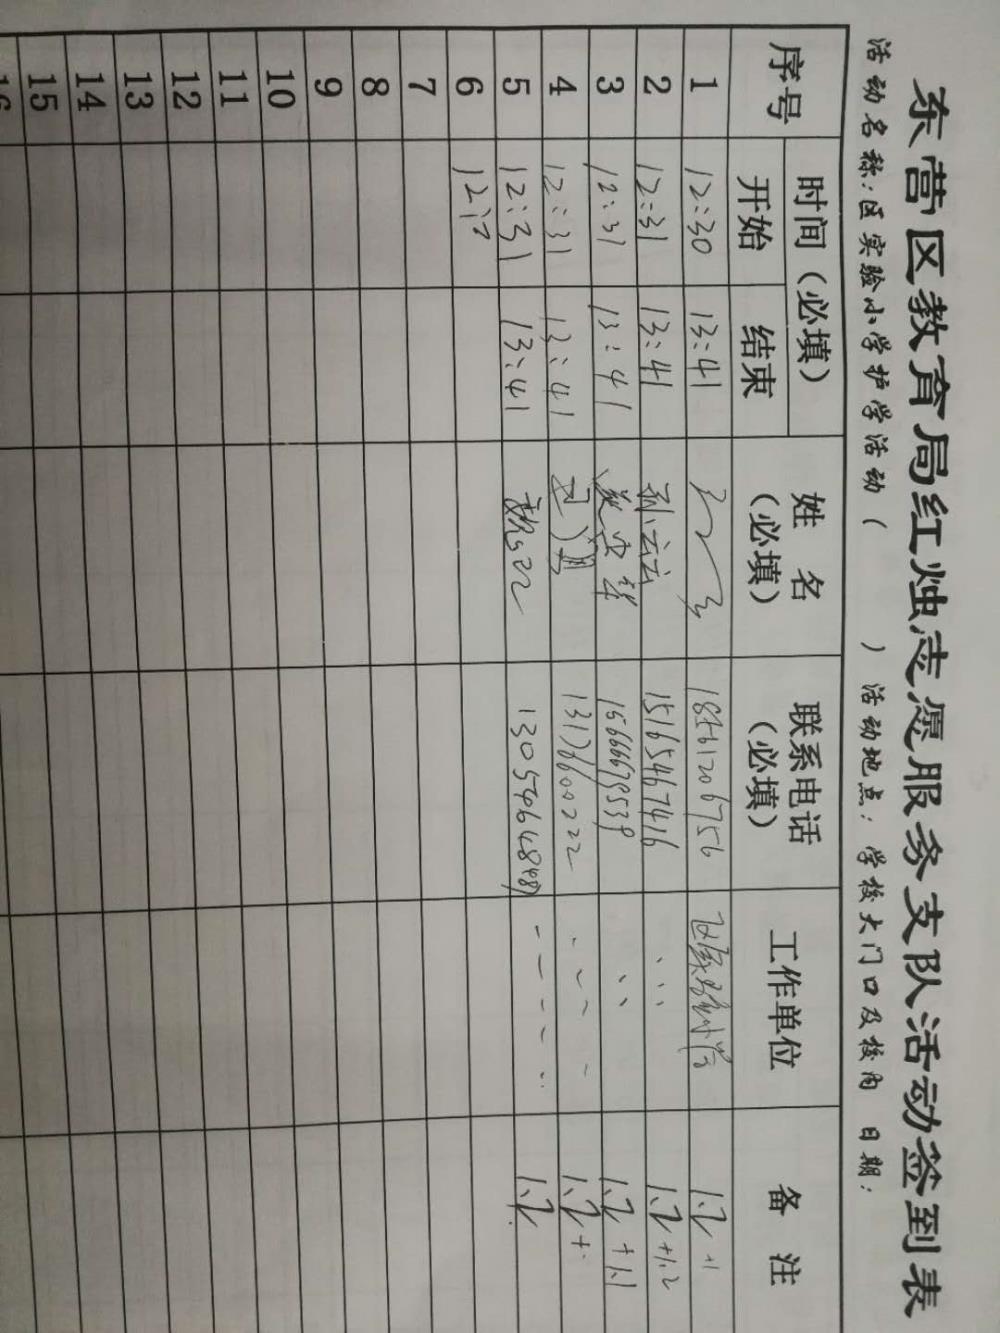 东营区教育局红烛志愿服务支队活动签到表
活动名称:区实验小学护学活动( ) 活动地点:学校大门口及校内 日期:
序号 时间(必填) 姓名(必填) 联系电话(必填) 工作单位 备注
开始 结束
1 12:30 13:41 1.2 +1
2 12:31 13:41 孙云云 15165467416 1.2 +1.2
3 12:31 13:41 15666679539 1.2 +1.1
4 12:31 13:41 13176600222 1.2 +
5 12:31 13:41 13054964848 1.2
6
7
8
9
10
11
12
13
14
15
16